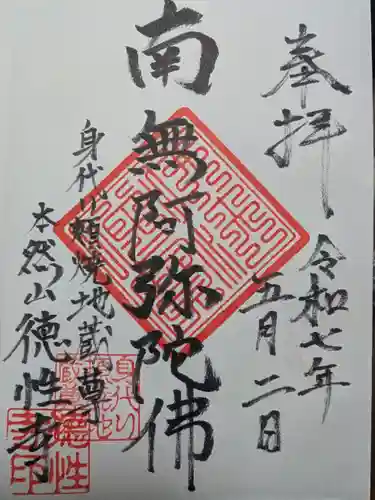 奉拝
令和七年
五月二日
南無阿弥陀佛
身代り頬焼地蔵尊
本然山徳性寺